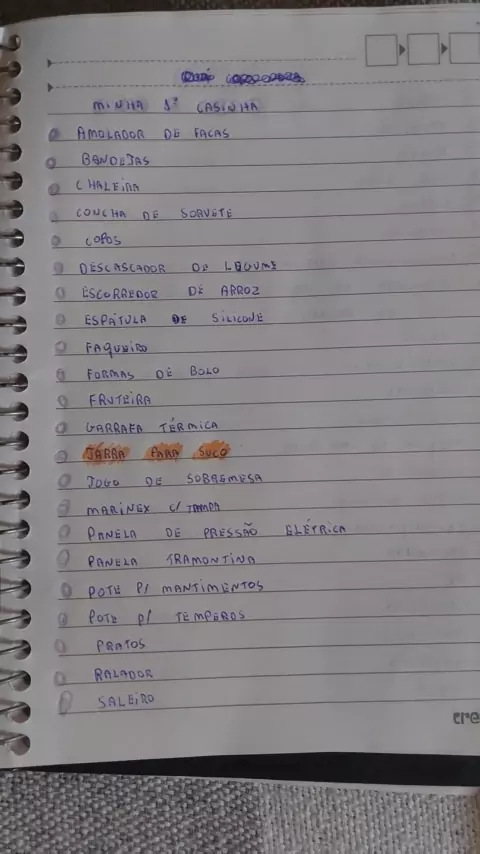 MINHA 1ª CASINHA
AMOLADOR DE FACAS
BANDEJAS
CHALEIRA
CONCHA DE SORVETE
COPOS
DESCASCADOR DE LEGUME
ESCORREDOR DE ARROZ
ESPÁTULA DE SILICONE
FAQUEIRO
FORMAS DE BOLO
FRUTEIRA
GARRAFA TÉRMICA
JARRA PARA SUCO
JOGO DE SOBREMESA
MARINEX C/ TAMPA
PANELA DE PRESSÃO ELÉTRICA
PANELA TRAMONTINA
POTE P/ MANTIMENTOS
POTE P/ TEMPEROS
PRATOS
RALADOR
SALEIRO
cre